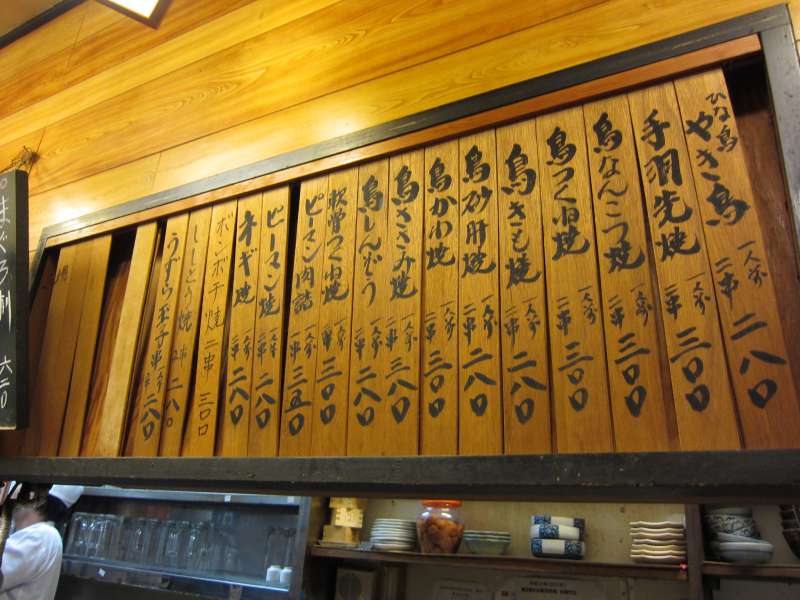 ひな鳥
やき鳥
一人前
二串
二八〇
手羽先焼
一人前
二串
三〇〇
鳥なんこつ焼
一人前
二串
三〇〇
鳥つくね焼
一人前
二串
三〇〇
鳥きも焼
一人前
二串
二八〇
鳥砂肝焼
一人前
二串
二八〇
鳥かわ焼
一人前
二串
三〇〇
鳥ささみ焼
一人前
二串
三八〇
鳥しんぞう
一人前
二串
二八〇
軟骨つくね焼
一人前
二串
三〇〇
ピーマン肉詰
一人前
二串
三五〇
ピーマン焼
一人前
二串
二八〇
ネギ焼
一人前
二串
二八〇
ボンボチ焼
二串
三〇〇
ししとう焼
二串
二八〇
うずら玉子串
二串
二八〇
まぐろ刺
六二〇